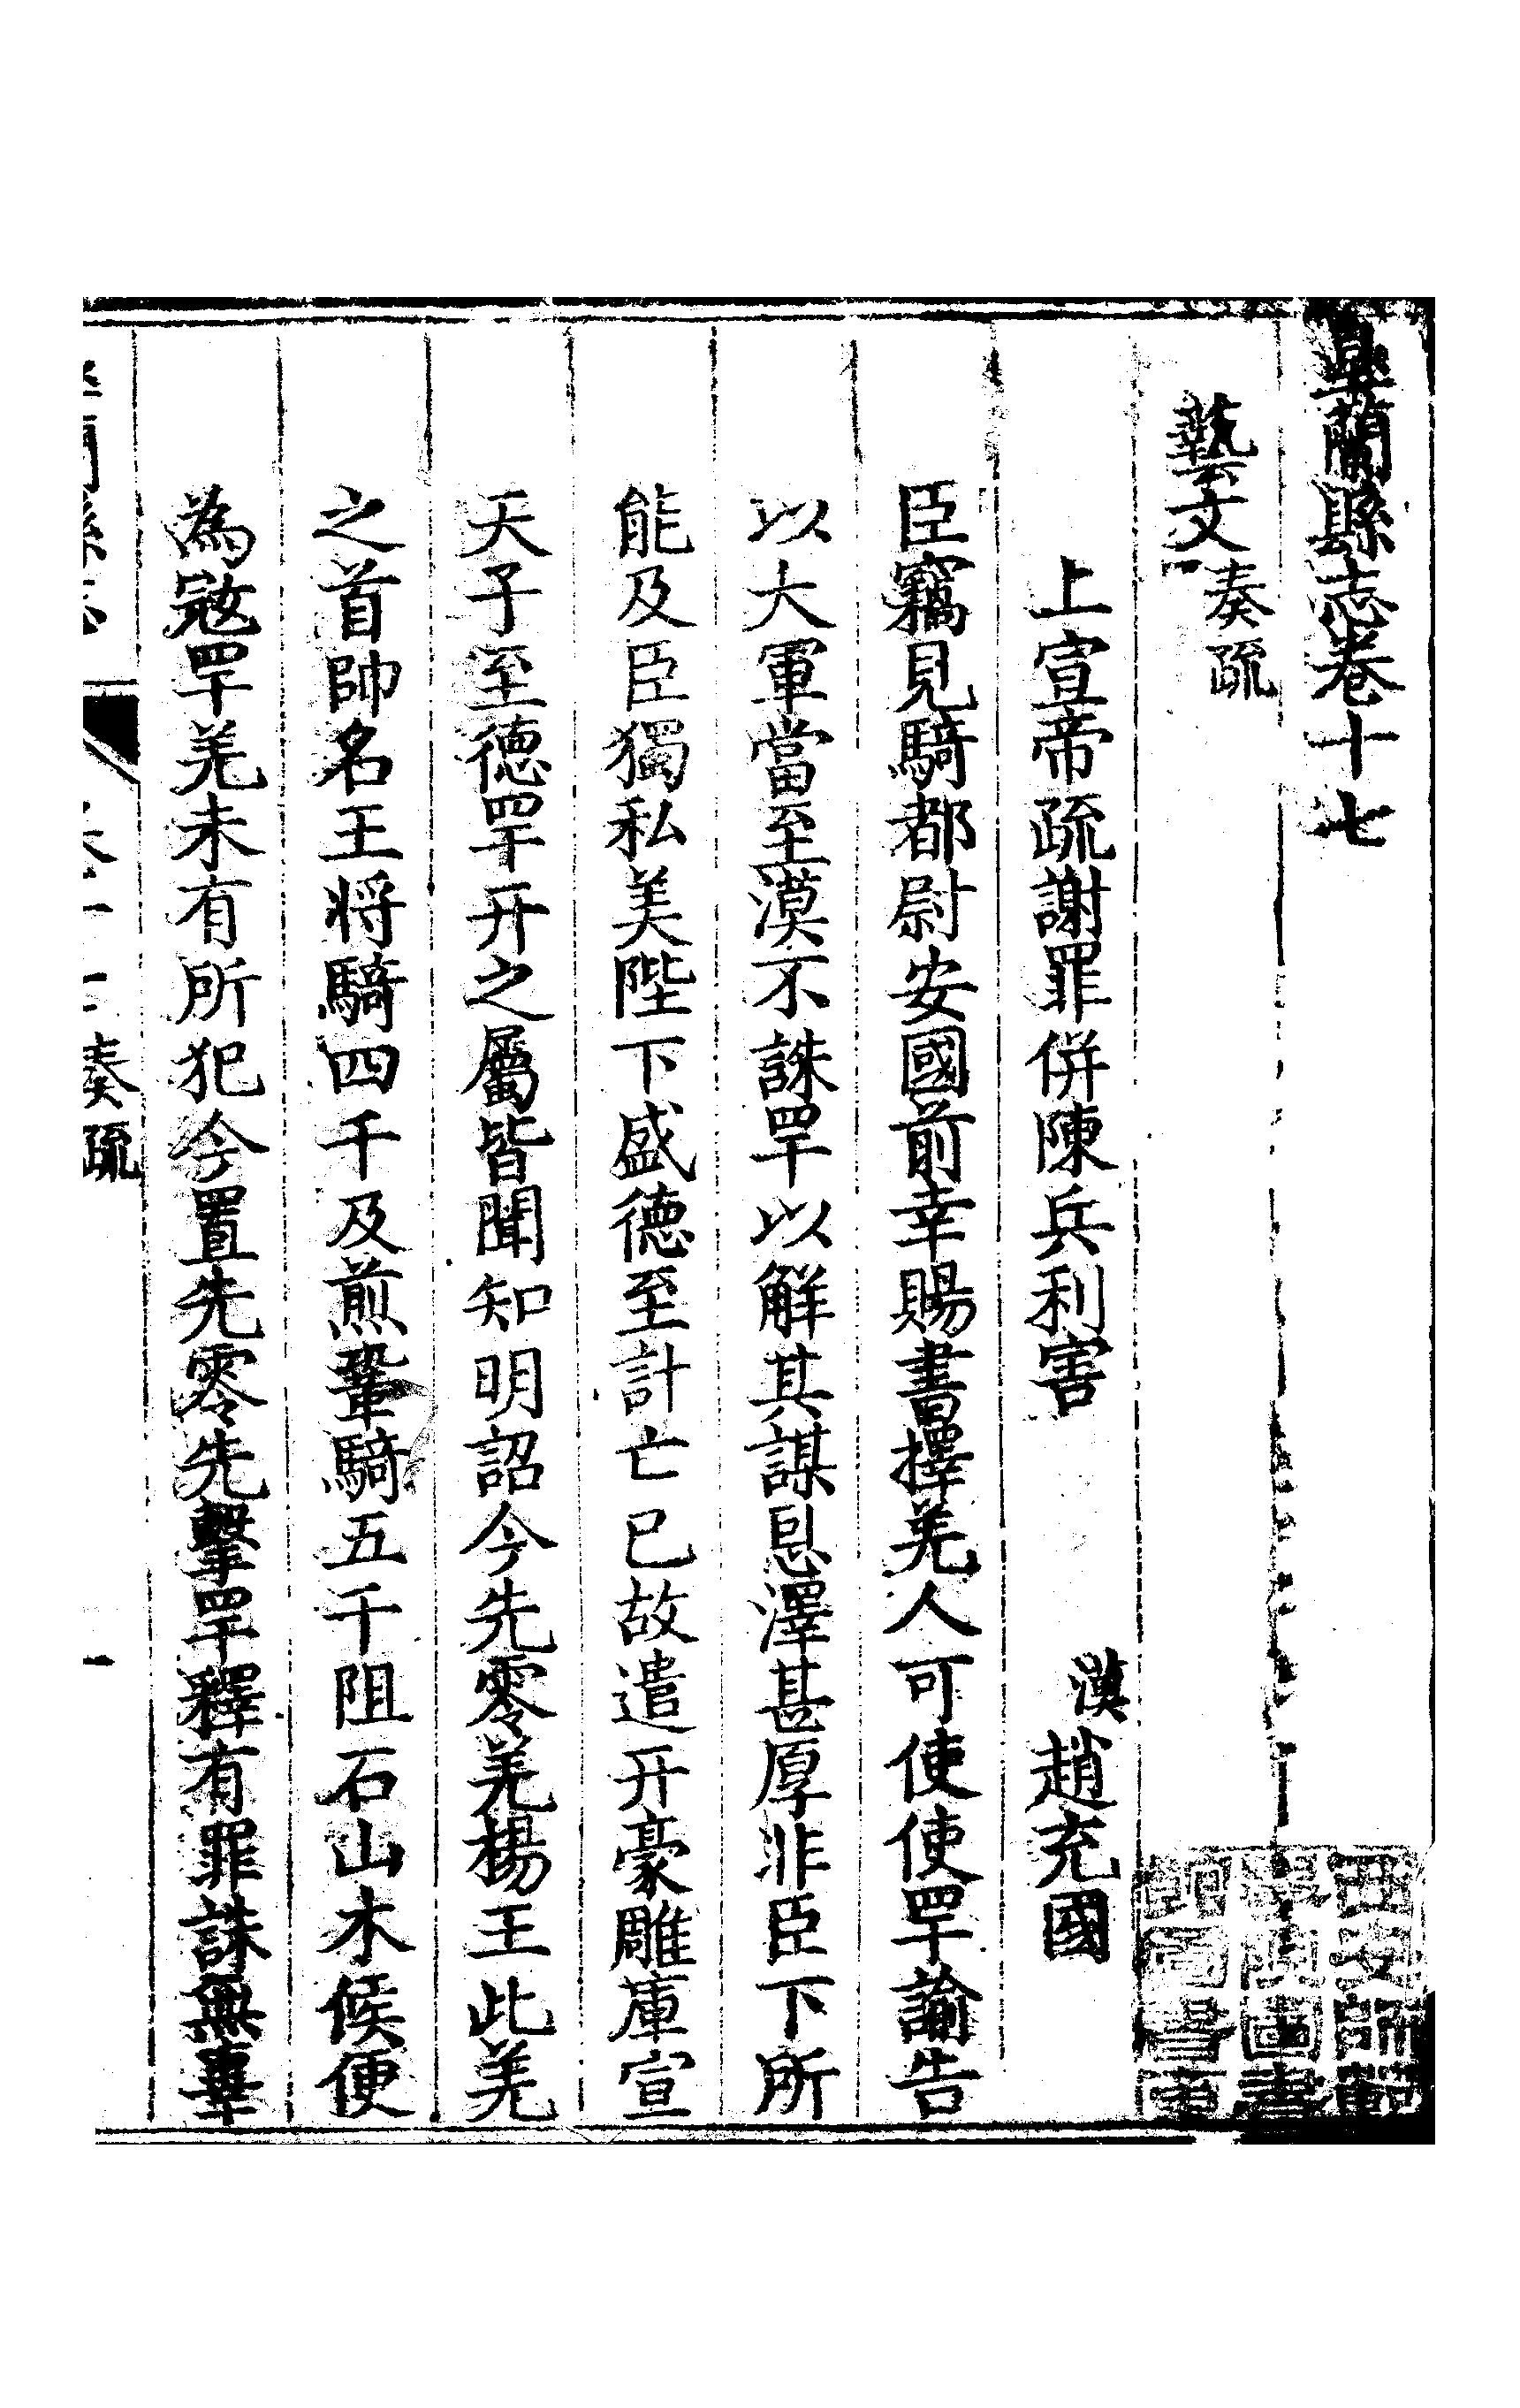 皐蘭縣志卷十七
藝文奏疏
上宣帝疏謝罪併陳兵利害 漢趙充國
臣竊見騎都尉安國前幸賜書擇羌人可使使罕諭告
以大軍當至漢不誅罕以解其謀恩澤甚厚非臣下所
能及臣獨私美陛下盛德至計亡已故遣开豪雕庫宣
天子至德罕开之屬皆聞知明詔今先零羌楊王此羌
之首帥名王将騎四千及煎鞏騎五千阻石山木候便
為寇罕羌未有所犯今置先零先擊罕釋有罪誅無辜
奏疏
一